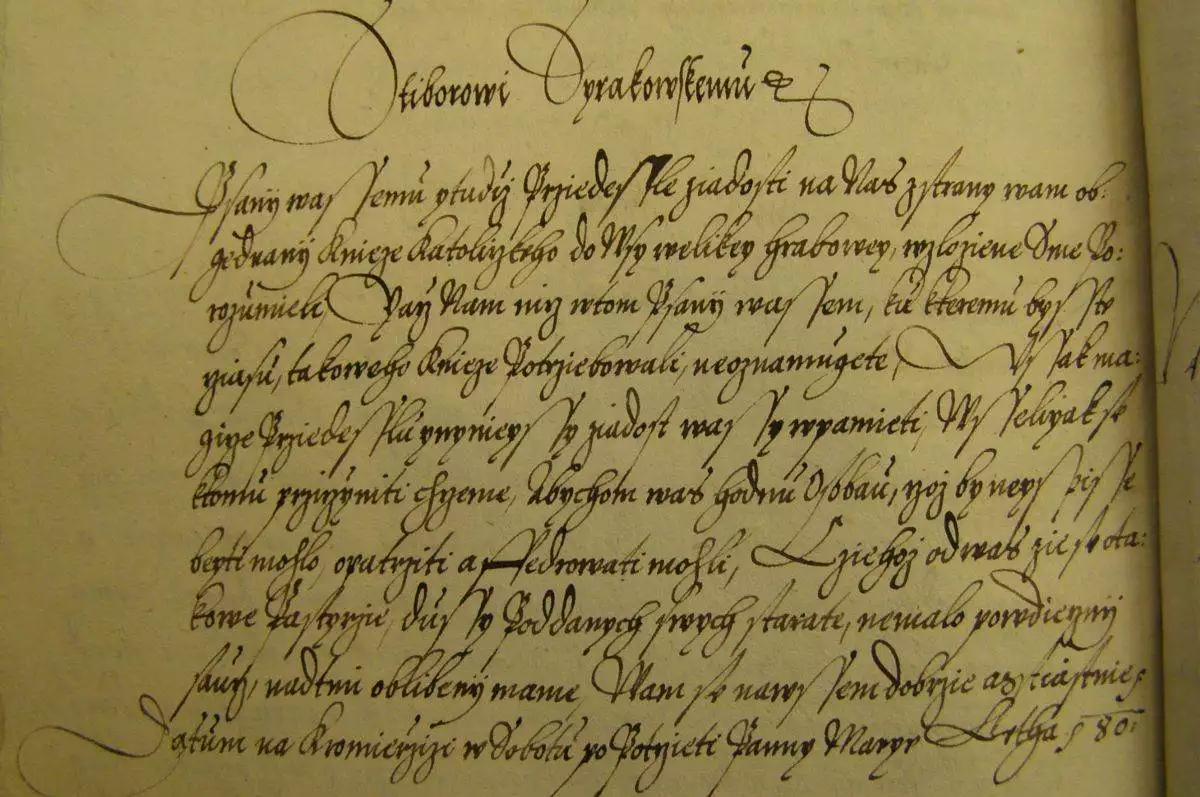 Stiborowi Syrakowskemu etc
Psanij wassemu ytudij Przedessle ziadosti na Nas zstrany wam ob:
gednanij Knieze Katolitzkeho do Wsy welikey Hrabowey, wzloziene Sme Po:
rozumieli, Nam nicz wtom Psanij wassem, ku kteremu byste
cziasu, takoweho Knieze Potrziebowali, neoznamugete, Wssak ma:
gicze Przedesslu ynynieyssy ziadost wassy wpamieti, Wsseliyak se
ktomu przicziniti chczeme, Abychom was hodnu Osobau, czoz by neysspisse
beyti mohlo, opatrziti a ffedrowati mohli, Cziehoz odwas zie se ota:
kowe Pastyrzie, dussy Poddanych swych starate, nemalo powdieczny
saucz, nadtim oblibeny mame, Wam se nawssem dobrzie asstiastnie
Datum na Kromierzizi w Sobotu po Poczieti Panny Maryi Letha 80: